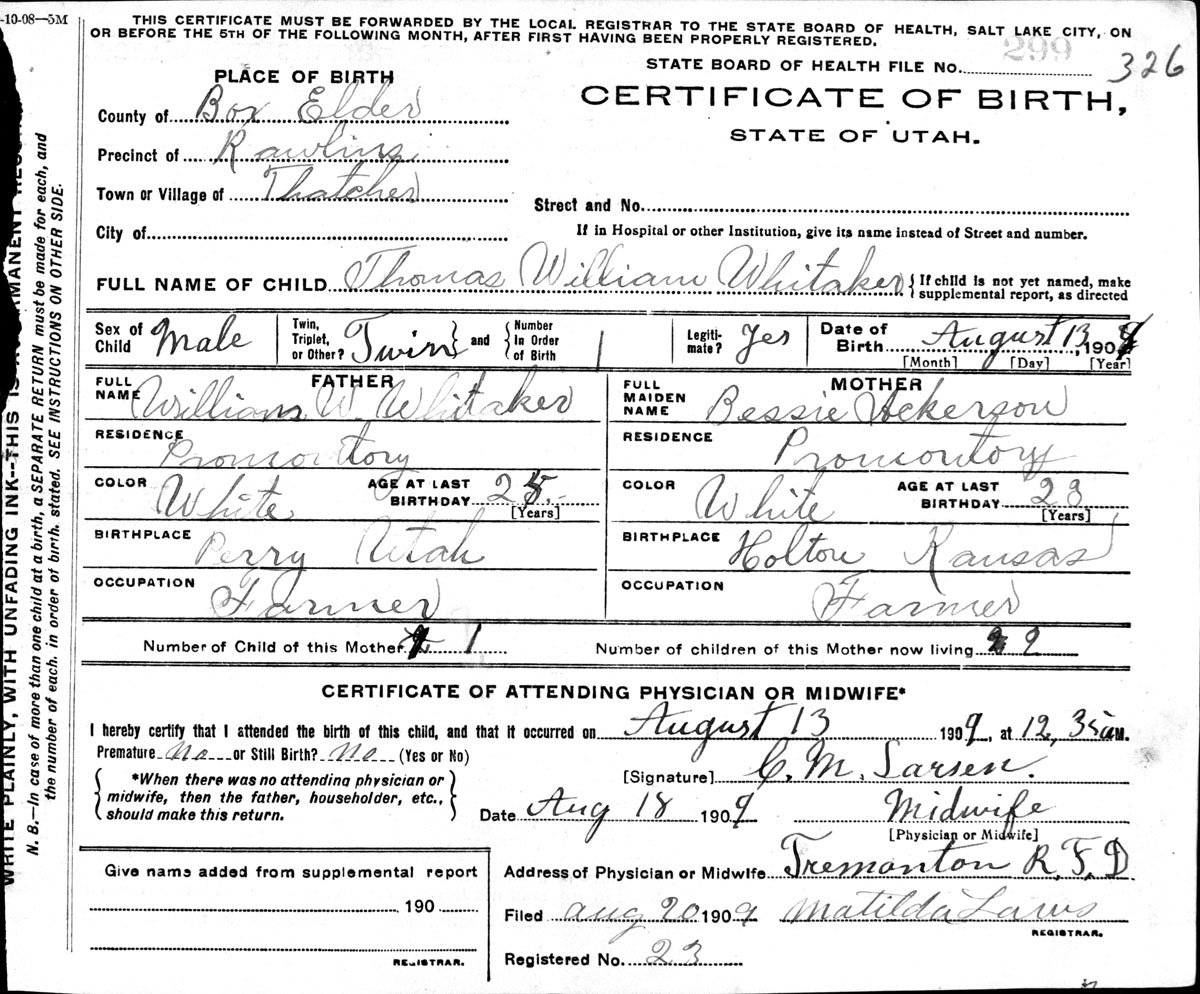 -10-08—5M
THIS CERTIFICATE MUST BE FORWARDED BY THE LOCAL REGISTRAR TO THE STATE BOARD OF HEALTH, SALT LAKE CITY, ON
OR BEFORE THE 5TH OF THE FOLLOWING MONTH, AFTER FIRST HAVING BEEN PROPERLY REGISTERED.
299
STATE BOARD OF HEALTH FILE No. 326
PLACE OF BIRTH
CERTIFICATE OF BIRTH,
STATE OF UTAH.
County of Box Elder
Precinct of Rawlins
Town or Village of Thatcher
Street and No.
City of
If in Hospital or other Institution, give its name instead of Street and number.
FULL NAME OF CHILD Thomas William Whitaker { If child is not yet named, make
supplemental report, as directed
Sex of Child Male Twin, Triplet, or Other? Twin } and { Number In Order of Birth 1 Legitimate? Yes Date of Birth August 13, 1909
[Month] [Day] [Year]
FATHER MOTHER
FULL NAME William W. Whitaker FULL MAIDEN NAME Bessie Ackerson
RESIDENCE Promontory RESIDENCE Promontory
COLOR White AGE AT LAST BIRTHDAY 25 COLOR White AGE AT LAST BIRTHDAY 23
[Years] [Years]
BIRTHPLACE Perry Utah BIRTHPLACE Holton Kansas
OCCUPATION Farmer OCCUPATION Farmer
Number of Child of this Mother 1 Number of children of this Mother now living 2
CERTIFICATE OF ATTENDING PHYSICIAN OR MIDWIFE*
I hereby certify that I attended the birth of this child, and that it occurred on August 13 1909, at 12,35 a M.
Premature No or Still Birth? No (Yes or No)
{ *When there was no attending physician or
midwife, then the father, householder, etc.,
should make this return. }
[Signature] C. M. Larsen.
Date Aug 18 1909 Midwife
[Physician or Midwife]
Give name added from supplemental report
190
REGISTRAR.
Address of Physician or Midwife Tremonton R.F.D.
Filed Aug 20 1909 Matilda Laws
REGISTRAR.
Registered No. 23
WRITE PLAINLY, WITH UNFADING INK--THIS IS A PERMANENT
N. B.—In case of more than one child at a birth, a SEPARATE RETURN must be made for each, and
the number of each, in order of birth, stated. SEE INSTRUCTIONS ON OTHER SIDE.